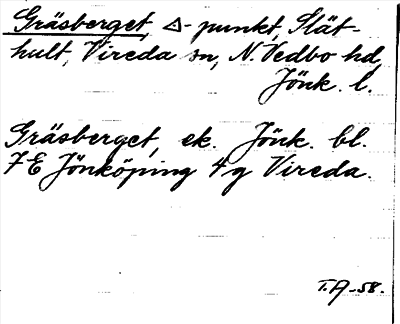 Gräsberget, △-punkt, Slät-
hult, Vireda sn, N. Vedbo hd,
Jönk. l.
Gräsberget, ek. Jönk. bl.
7E Jönköping 4g Vireda.
T.A-58.